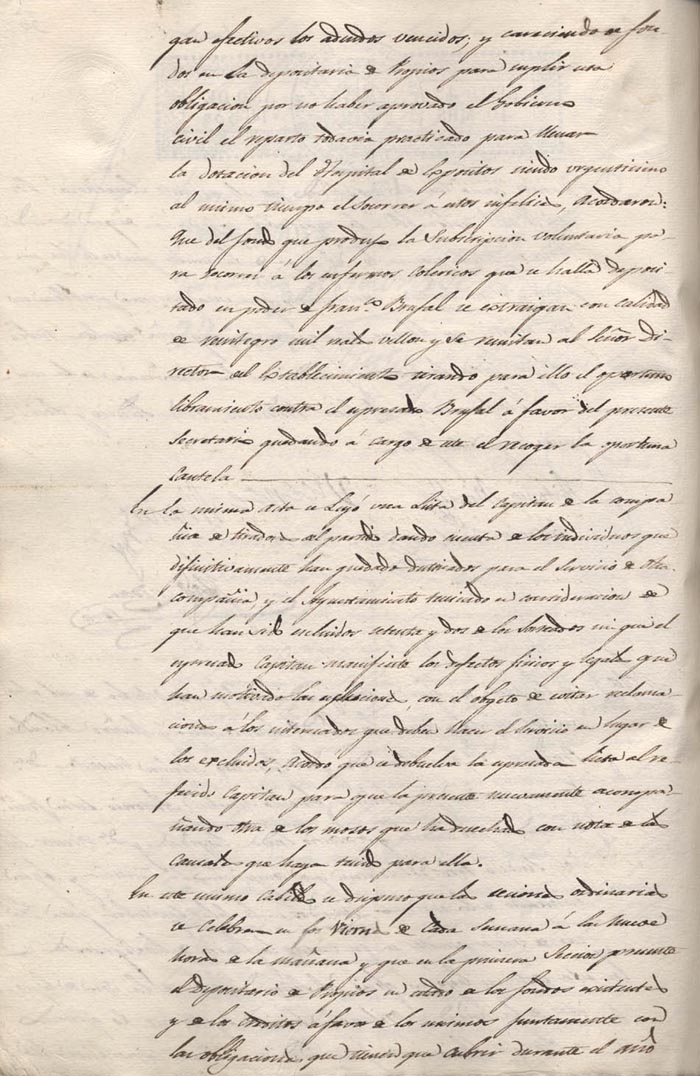 gan efectivos los adeudos vencidos; y careciendo de fon-
dos en la depositaria de Propios para cumplir esta
obligacion por no haber aprovado el Gobierno
civil el reparto todavia practicado para llenar
la dotacion del Hospital de Espositos siendo urgentisimo
al mismo tiempo el socorrer a estos infelices, Acordaron:
Que del fondo que produjo la Subscripcion voluntaria pa-
ra socorrer á los enfermos Colericos que se halla deposi-
tado en poder de Fran.co Brufal se estraigan con calidad
de reintegro mil rs vellon y se remitan al Señor Di-
rector del Establecimiento tirando para ello el oportuno
libramiento contra el espresado Brufal á favor del presente
Secretario quedando á cargo de este el recoger la oportuna
Cautela
En la misma acta se Leyó una Lista del Capitan de la compa-
ñia de tiradores del partido dando cuenta de los individuos que
difinitivamente han quedado para el Servicio de dha
compañia y el Ayuntamiento teniendo en consideracion
que han sido escluidos setenta y dos de los Sorteados sin que el
espresado Capitan manifieste los defectos fisicos y legales que
han motivado las esclusiones, con el objeto de evitar reclama-
ciones á los interesados que deben hacer el Servicio en lugar de
los escluidos, Acordo que se debuelva la espresada lista al re-
ferido Capitan para que la presente nuevamente acompa-
ñando otra de los mosos que ha desechado con nota de las
Causales que haya tenido para ello.
En este mismo Cabildo se dispuso que las seciones ordinarias
se Celebrasen en los Viernes de Cada Semana á las Nueve
horas de la mañana y que en la primera Secion presente
el Depositario de Propios un estado de los fondos existentes
y de los creditos á favor de los mismos juntamente con
las obligaciones que tienen que cubrir durante el año